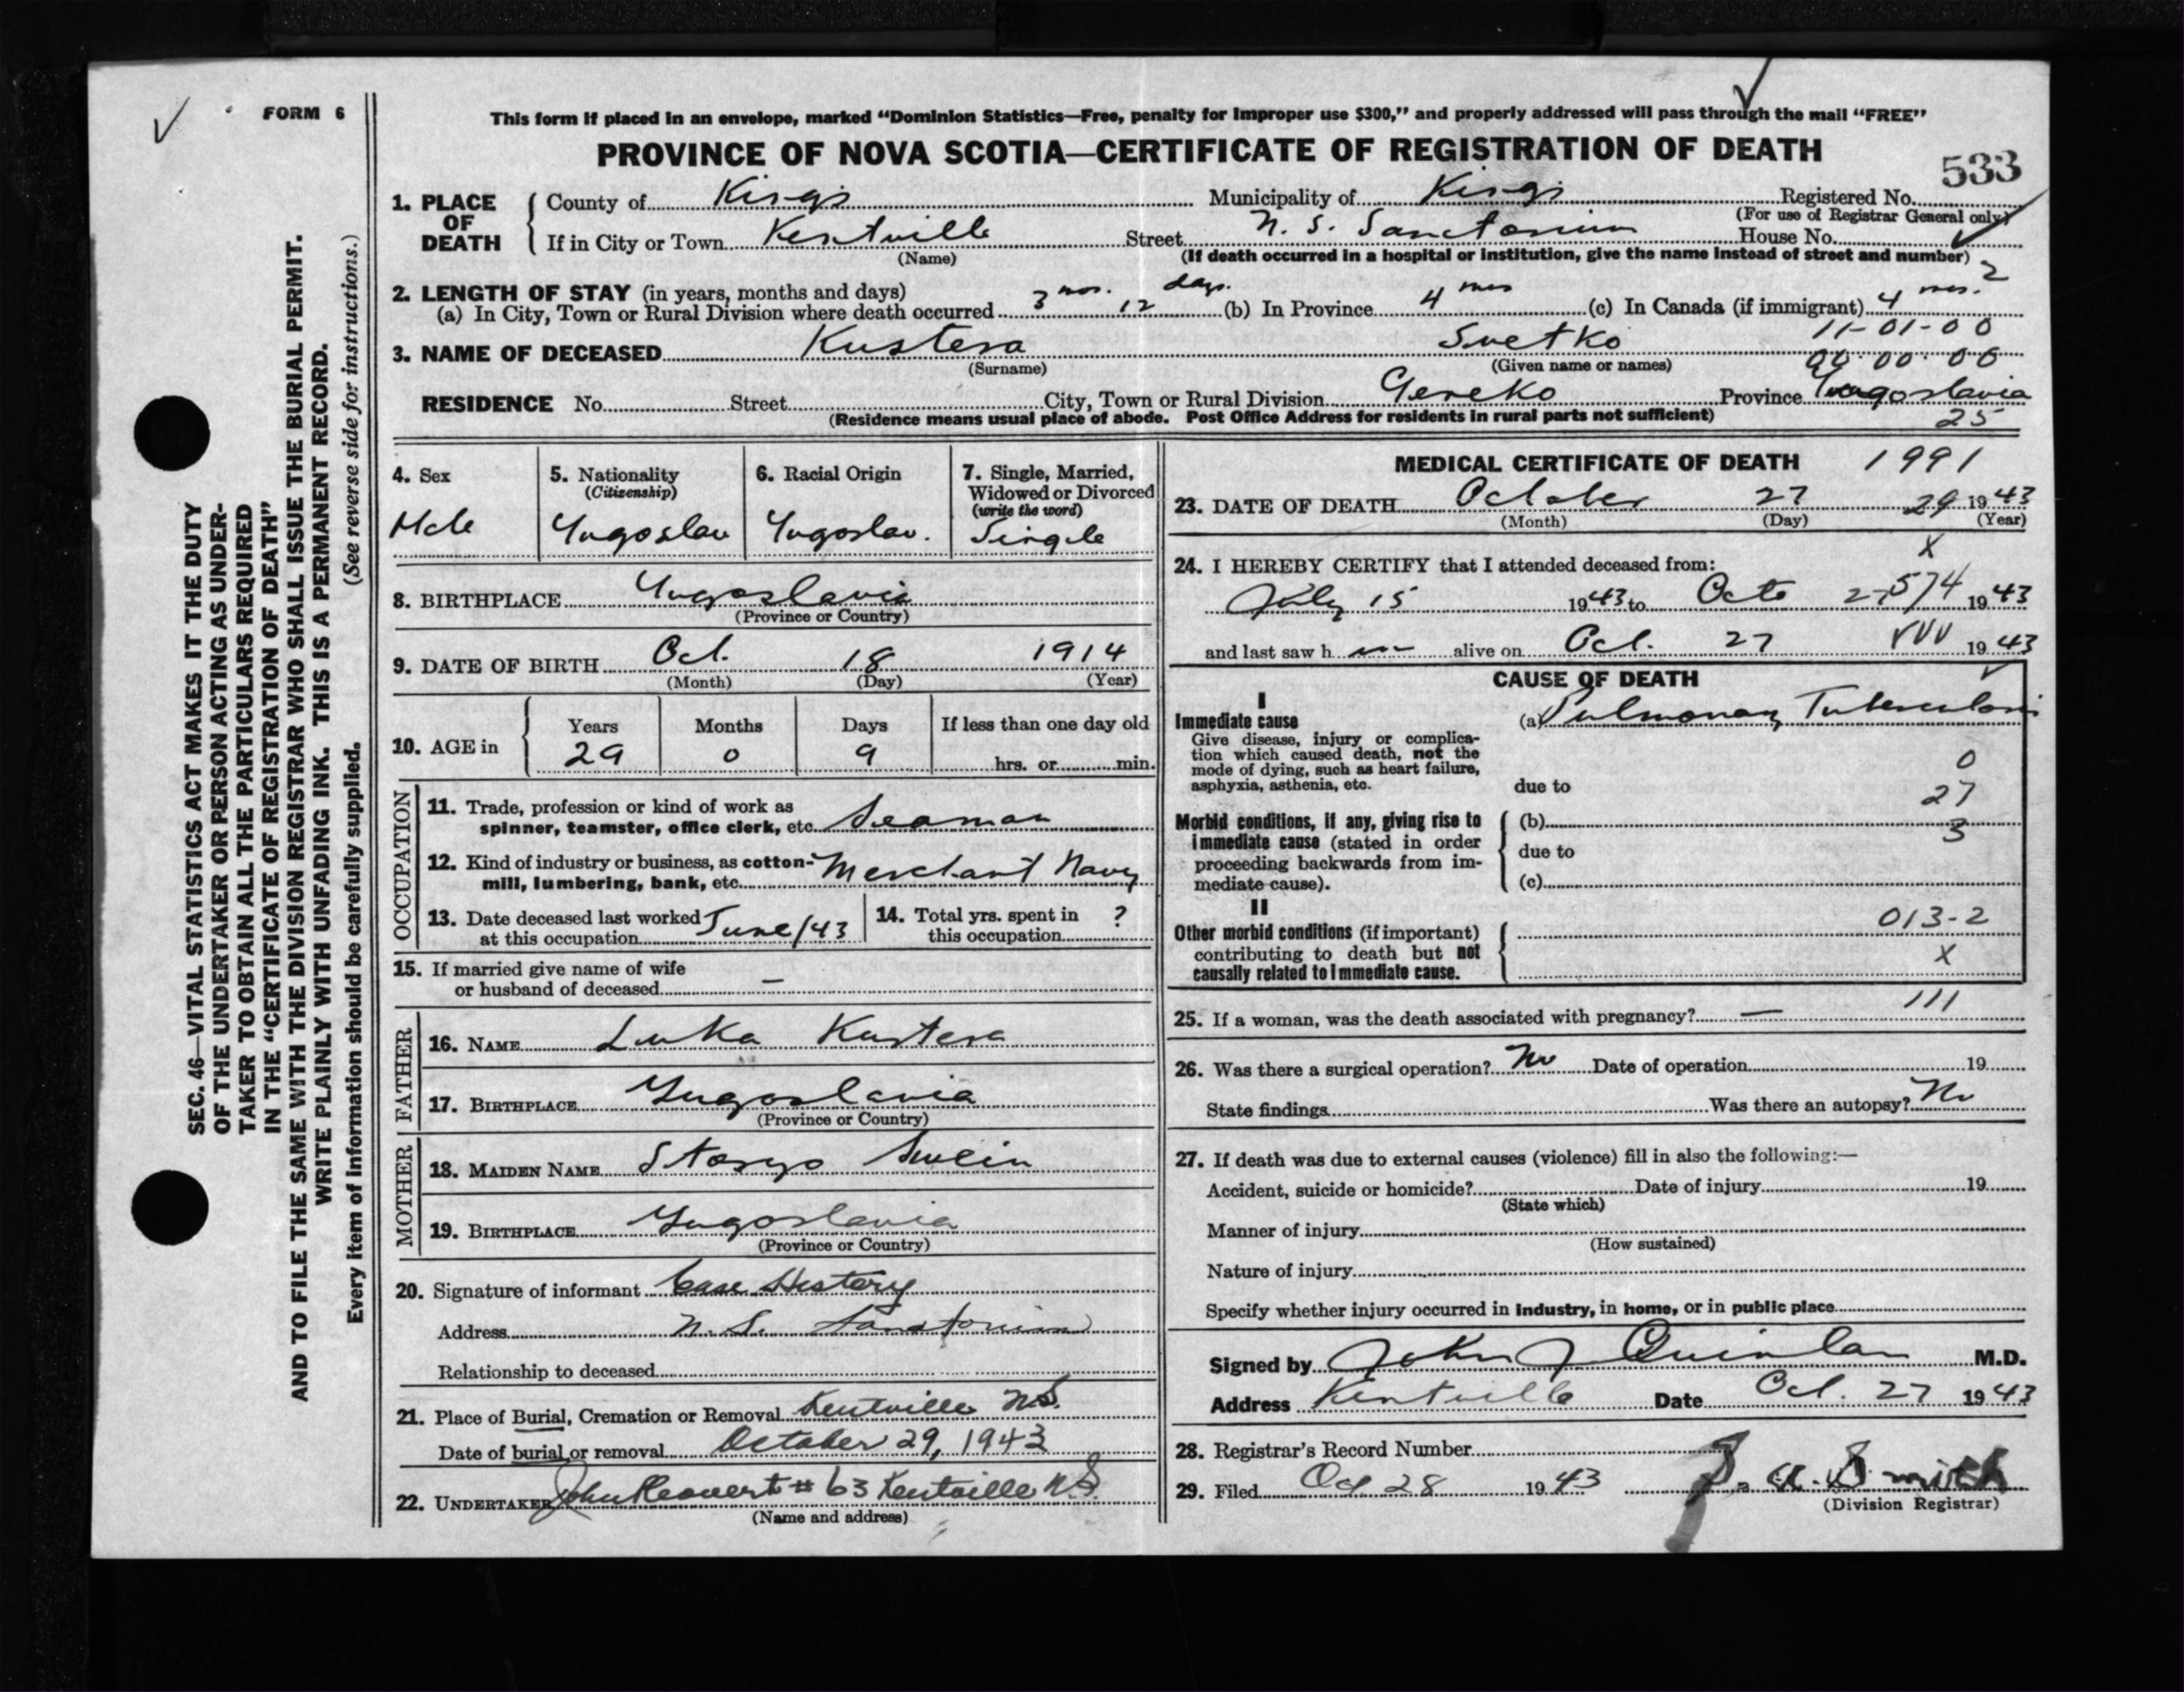 FORM 6
This form if placed in an envelope, marked “Dominion Statistics—Free, penalty for improper use $300,” and properly addressed will pass through the mail “FREE”
PROVINCE OF NOVA SCOTIA—CERTIFICATE OF REGISTRATION OF DEATH
533
1. PLACE OF DEATH County of Kings Municipality of Kings Registered No.
(For use of Registrar General only)
If in City or Town Kentville Street N. S. Sanctorium House No.
(Name) (If death occurred in a hospital or institution, give the name instead of street and number)
2
2. LENGTH OF STAY (in years, months and days)
(a) In City, Town or Rural Division where death occurred 3 mos. 12 days. (b) In Province 4 mos (c) In Canada (if immigrant) 4 mos.
11-01-00
3. NAME OF DECEASED Kustera Svetko
(Surname) (Given name or names)
00.00.00
RESIDENCE No. Street City, Town or Rural Division Gereko Province Yugoslavia
(Residence means usual place of abode. Post Office Address for residents in rural parts not sufficient)
25
4. Sex
Male
5. Nationality
(Citizenship)
Yugoslav
6. Racial Origin
Yugoslav.
7. Single, Married,
Widowed or Divorced
(write the word)
Single
8. BIRTHPLACE Yugoslavia
(Province or Country)
9. DATE OF BIRTH Oct. 18 1914
(Month) (Day) (Year)
10. AGE in
Years Months Days If less than one day old
29 0 9 hrs. or min.
OCCUPATION
11. Trade, profession or kind of work as
spinner, teamster, office clerk, etc. Seaman
12. Kind of industry or business, as cotton-
mill, lumbering, bank, etc. Merchant Navy
13. Date deceased last worked
at this occupation June/43
14. Total yrs. spent in
this occupation ?
15. If married give name of wife
or husband of deceased —
FATHER
16. NAME Luka Kustera
17. BIRTHPLACE Yugoslavia
(Province or Country)
MOTHER
18. MAIDEN NAME
19. BIRTHPLACE Yugoslavia
(Province or Country)
20. Signature of informant Case History
Address N. S. Sanatorium
Relationship to deceased
21. Place of Burial, Cremation or Removal Kentville N.S.
Date of burial or removal October 29, 1943
22. UNDERTAKER John # 63 Kentville N.S.
(Name and address)
MEDICAL CERTIFICATE OF DEATH 1991
23. DATE OF DEATH October 27 29 1943
(Month) (Day) (Year)
X
24. I HEREBY CERTIFY that I attended deceased from:
July 15 1943 to Octo 27 574 1943
and last saw h im alive on Oct. 27 1943
CAUSE OF DEATH
I
Immediate cause
Give disease, injury or complica-
tion which caused death, not the
mode of dying, such as heart failure,
asphyxia, asthenia, etc.
(a) Pulmonary Tuberculosis
0
due to
27
Morbid conditions, if any, giving rise to
immediate cause (stated in order
proceeding backwards from im-
mediate cause).
(b)
3
due to
(c)
II
Other morbid conditions (if important)
contributing to death but not
causally related to immediate cause.
013-2
X
111
25. If a woman, was the death associated with pregnancy? —
26. Was there a surgical operation? No Date of operation 19
State findings Was there an autopsy? No
27. If death was due to external causes (violence) fill in also the following:—
Accident, suicide or homicide? Date of injury 19
(State which)
Manner of injury
(How sustained)
Nature of injury
Specify whether injury occurred in industry, in home, or in public place
Signed by John J Quinlan M.D.
Address Kentville Date Oct. 27 1943
28. Registrar's Record Number
29. Filed Oct 28 1943 Smith
(Division Registrar)
SEC. 46—VITAL STATISTICS ACT MAKES IT THE DUTY
OF THE UNDERTAKER OR PERSON ACTING AS UNDER-
TAKER TO OBTAIN ALL THE PARTICULARS REQUIRED
IN THE “CERTIFICATE OF REGISTRATION OF DEATH”
AND TO FILE THE SAME WITH THE DIVISION REGISTRAR WHO SHALL ISSUE THE BURIAL PERMIT.
WRITE PLAINLY WITH UNFADING INK. THIS IS A PERMANENT RECORD.
Every item of information should be carefully supplied. (See reverse side for instructions.)